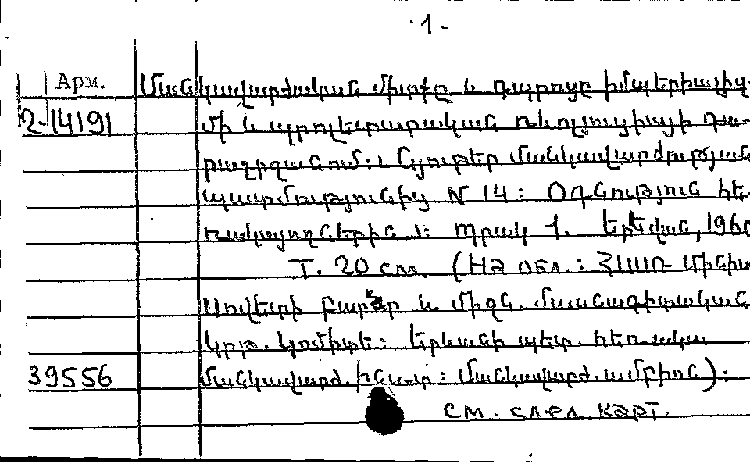 - 1 -
Арм. Մանկավարժական միտքը և դպրոցը իմպերիալիզ-
2-14191 մի և պրոլետարական ռևոլուցիայի դա-
րաշրջանում: Նյութեր մանկավարժության
պատմությունից N 14: Օգնություն հե-
ռակայողներին: Պրակ 1. Երևան, 196
т. 20 см. (На обл.: ՀՍՍՌ Մինիս
Սովետի բարձր և միջն. մասնագիտական
կրթ. կոմիտե: Երևանի պետ. հեռակա
39556 մանկավարժ. ինստ: Մանկավարժ. ամբիոն):
см. след. карт.